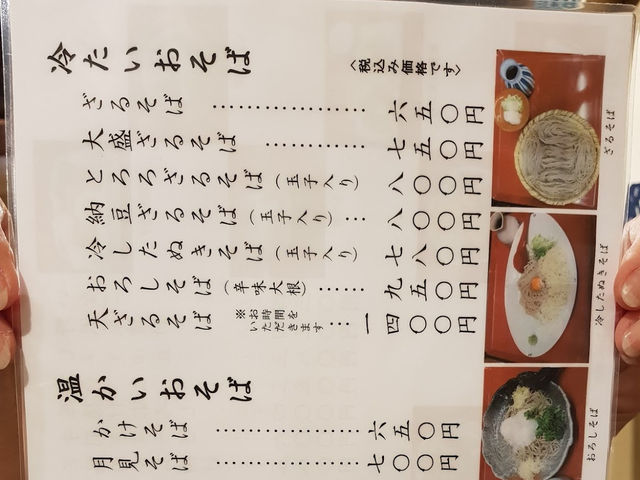 冷たいおそば
〈税込み価格です〉
ざるそば …………… 六五〇円
大盛ざるそば ………… 七五〇円
とろろざるそば（玉子入り） 八〇〇円
納豆ざるそば（玉子入り）… 八〇〇円
冷したぬきそば（玉子入り） 七八〇円
おろしそば（辛味大根）…… 九五〇円
天ざるそば ※お時間をいただきます …… 一四〇〇円
温かいおそば
かけそば …………… 六五〇円
月見そば …………… 七〇〇円
ざるそば
冷したぬきそば
おろしそば